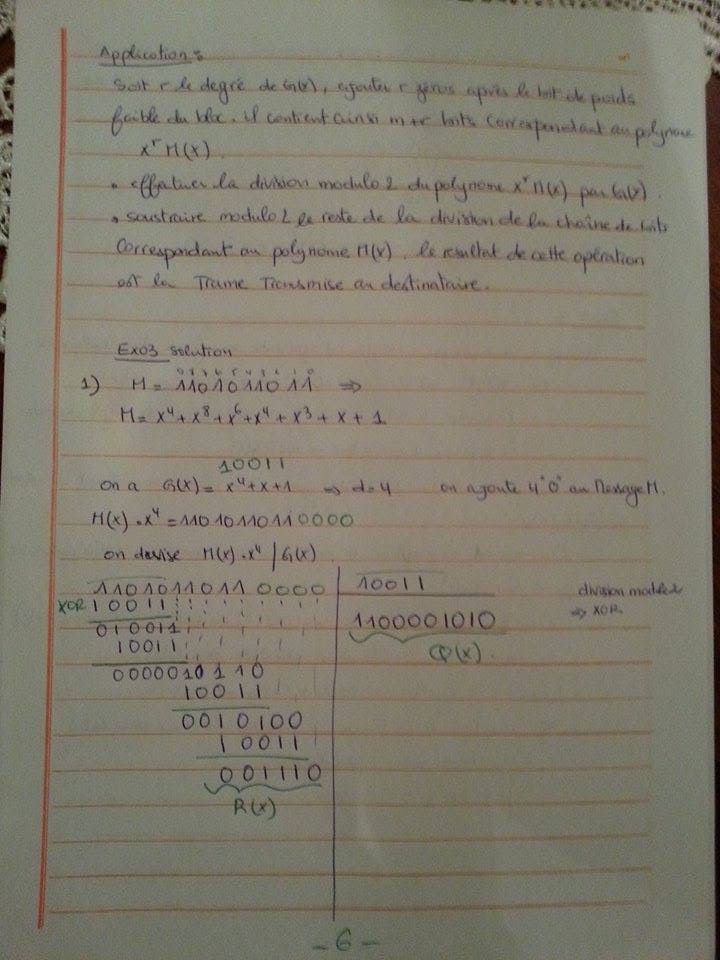 Application :
Soit r le degré de G(x), ajouter r zéros après le bit de poids
faible du bloc. il contient ainsi m+r bits correspondant au polynome
x^r M(x).
• effectuer la division modulo 2 du polynome x^r M(x) par G(x).
• soustraire modulo 2 le reste de la division de la chaîne de bits
Correspondant au polynome M(x). le resultat de cette opération
est la Trame Transmise au destinataire.
Ex03 solution
1) M = 1101011011 ⇒
M = x⁴ + x⁸ + x⁶ + x⁴ + x³ + x + 1
10011
on a G(x) = x⁴ + x + 1 ⇒ d=4 on ajoute 4"0" au Message M.
M(x) . x⁴ = 11010110110000
on devise M(x) . x⁴ / G(x)
11010110110000 10011 division modulo 2
XOR 10011 1100001010 ⇒ XOR
010011 Q(x)
10011
0000010110
10011
0010100
10011
001110
R(x)
- 6 -